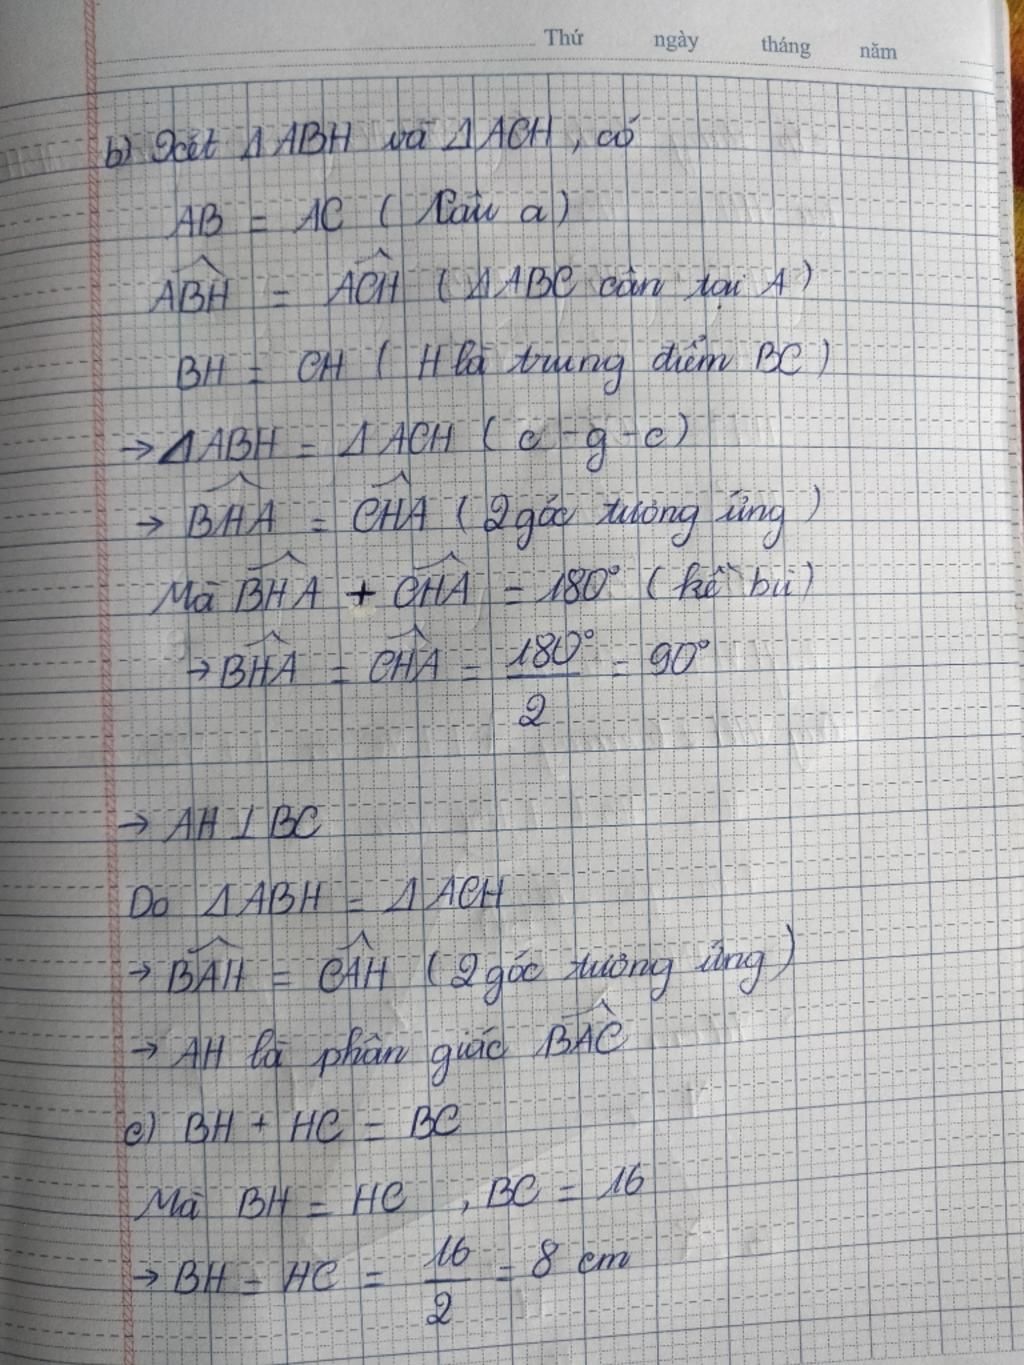 Thứ ngày tháng năm
b) Xét Δ ABH và Δ ACH , có
AB = AC ( Câu a )
\widehat{ABH} = \widehat{ACH} ( Δ ABC cân tại A )
BH = CH ( H là trung điểm BC )
→ Δ ABH = Δ ACH ( c - g - c )
→ \widehat{BHA} = \widehat{CHA} ( 2 góc tương ứng )
Mà \widehat{BHA} + \widehat{CHA} = 180° ( kề bù )
→ \widehat{BHA} = \widehat{CHA} = \frac{180°}{2} = 90°
→ AH ⊥ BC
Do Δ ABH = Δ ACH
→ \widehat{BAH} = \widehat{CAH} ( 2 góc tương ứng )
→ AH là phân giác \widehat{BAC}
c) BH + HC = BC
Mà BH = HC , BC = 16
→ BH = HC = \frac{16}{2} = 8 cm